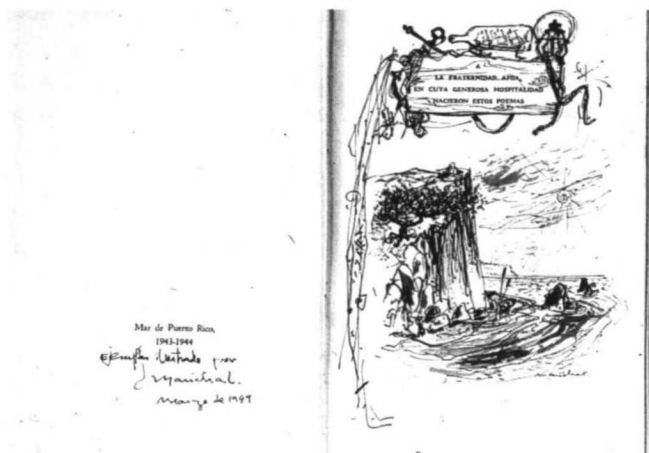 Mar de Puerto Rico,
1943-1944
ejemplar ilustrado por
J Marichal.
Marzo de 1949
A
LA FRATERNIDAD AFDA,
EN CUYA GENEROSA HOSPITALIDAD
NACIERON ESTOS POEMAS
marichal